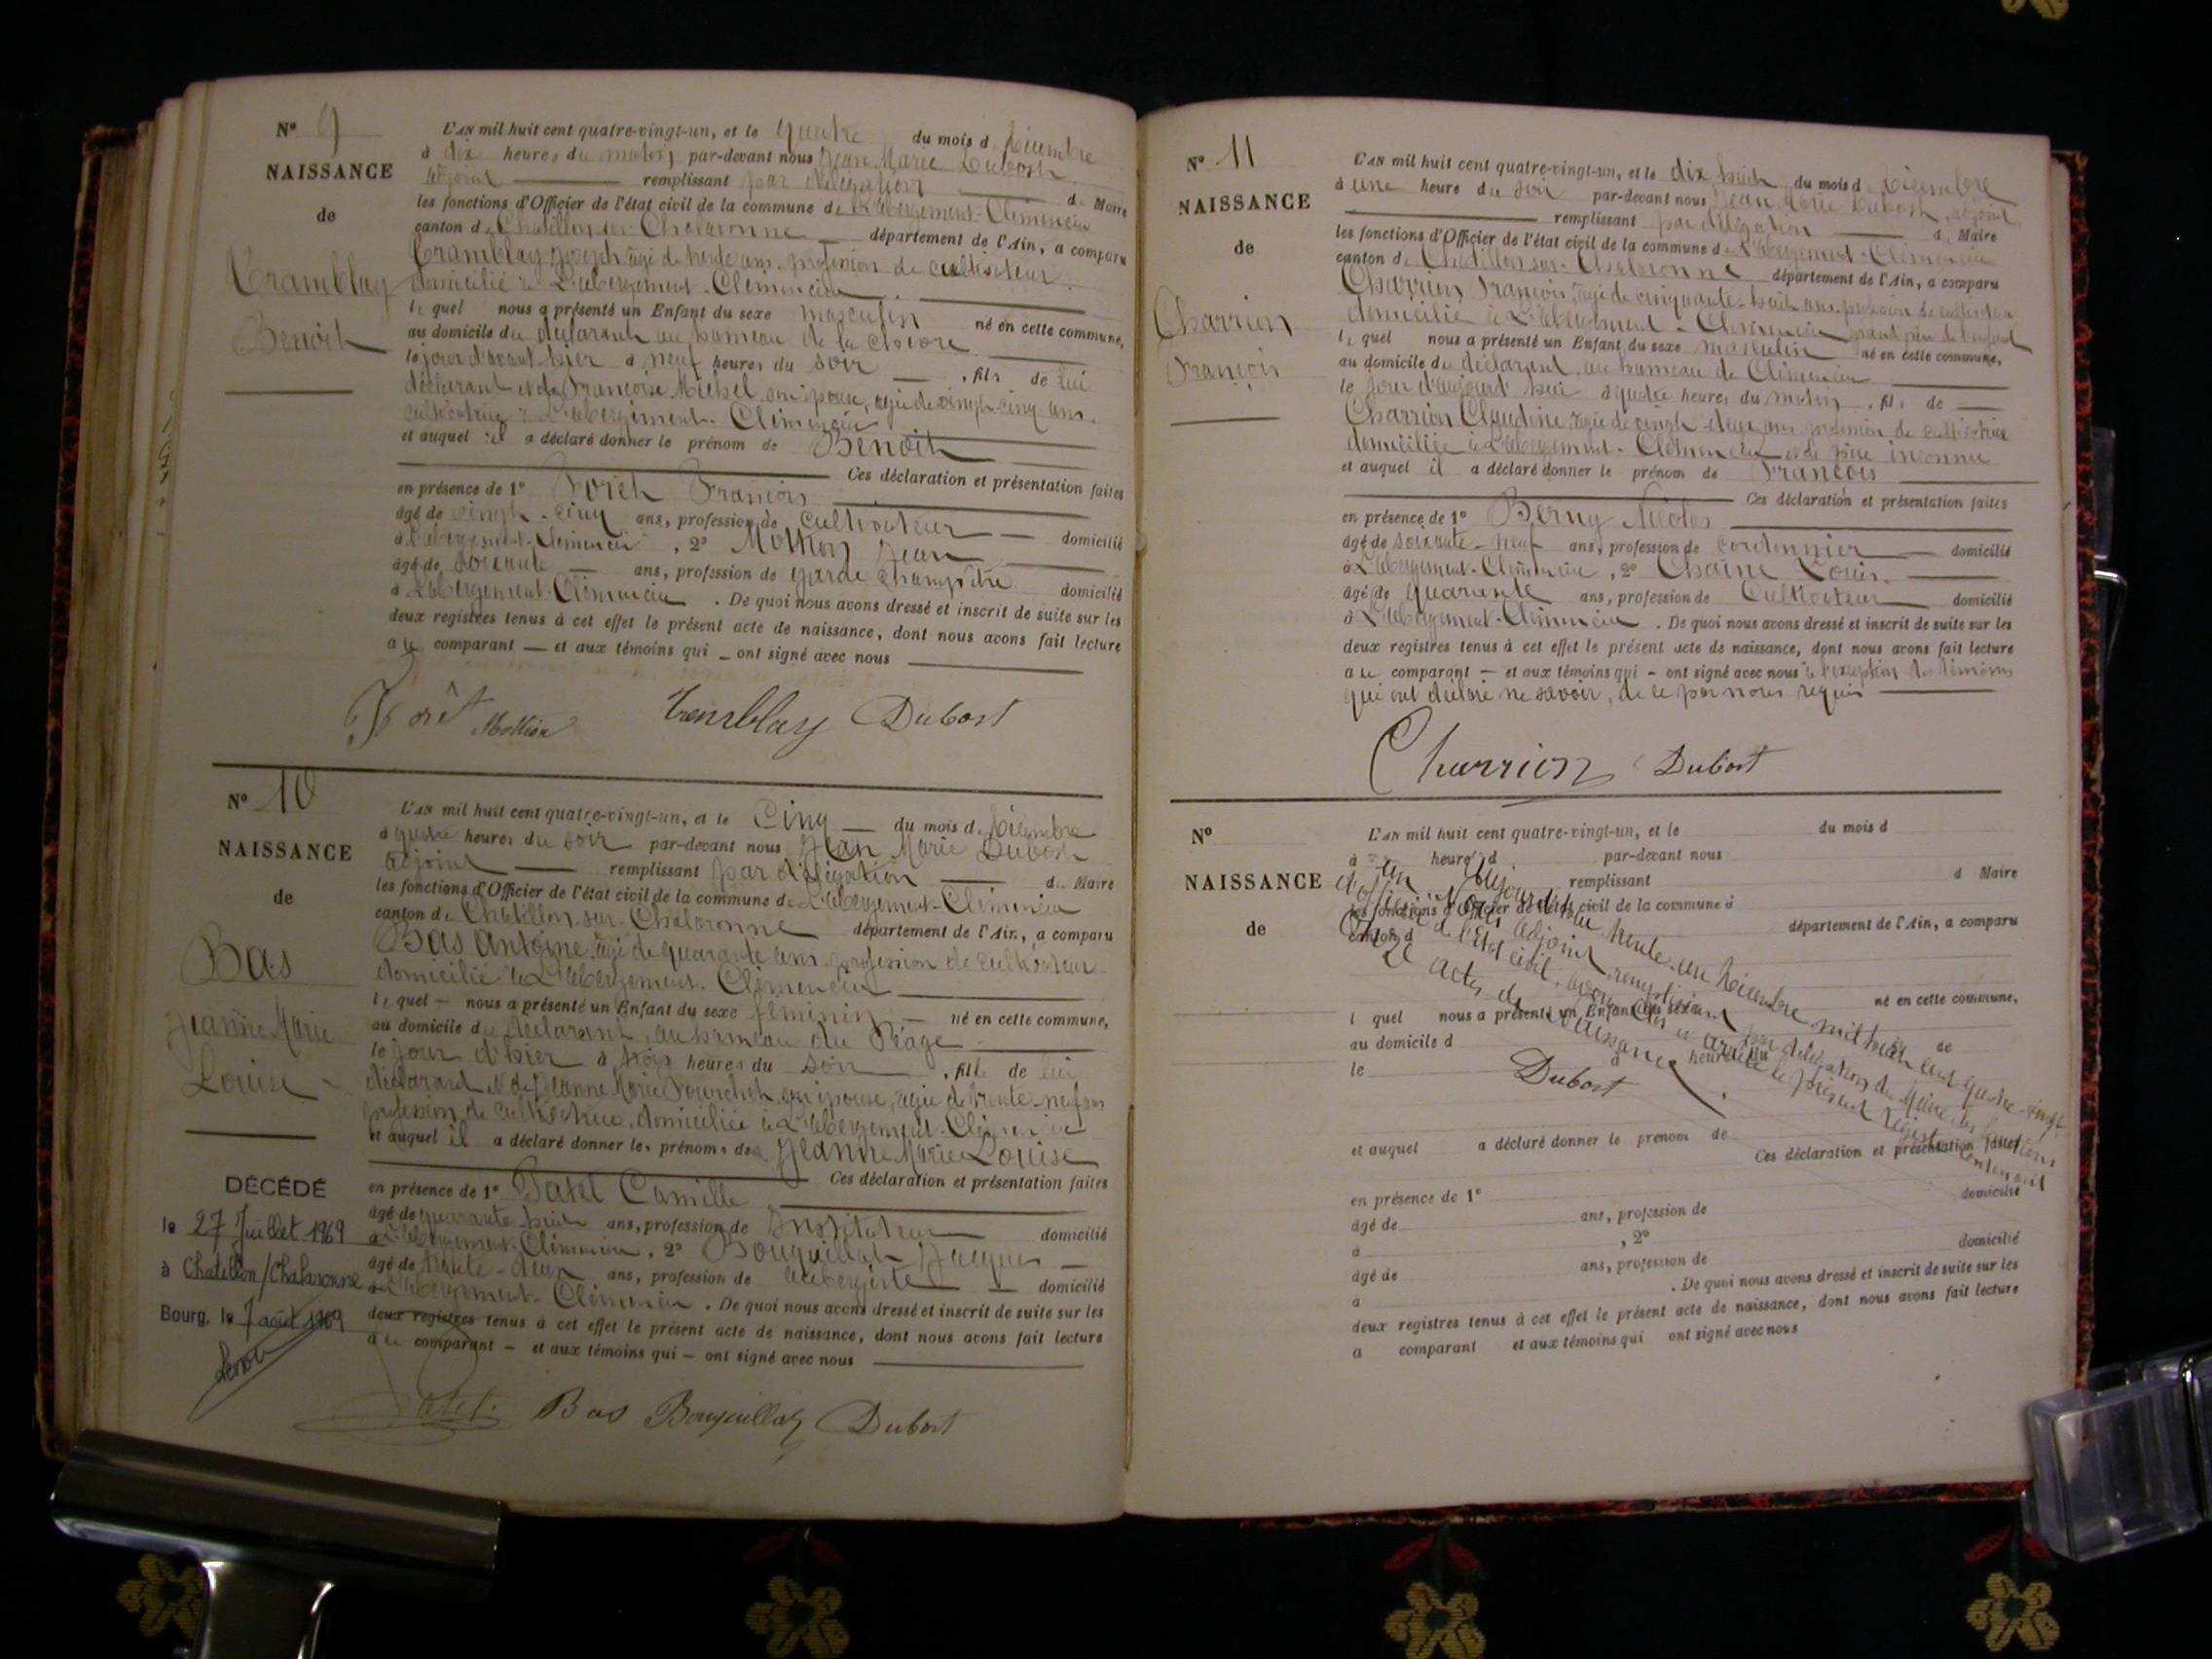 N° 9
NAISSANCE
de
Tramblay
Benoit
L'AN mil huit cent quatre-vingt-un, et le quatre du mois d Décembre
à dix heures du matin, par-devant nous Jean Marie Dubost
adjoint remplissant par délégation du Maire
les fonctions d'Officier de l'état civil de la commune de L'abergement-Clémencia
canton de Chatillon sur Chalaronne département de l'Ain, a comparu
Tramblay Joseph, agé de trente ans, profession de cultivateur
domicilié à L'abergement-Clémencia
le quel nous a présenté un Enfant du sexe masculin né en cette commune,
au domicile du déclarant au hameau de la
le jour d'avant hier à neuf heures du soir, fils de lui
déclarant et de Françoise Michel son épouse, agée de vingt-cinq ans,
cultivatrice à L'abergement-Clémencia
et auquel il a déclaré donner le prénom de Benoit
Ces déclaration et présentation faites
en présence de 1° Forêt François
âgé de vingt-cinq ans, profession de cultivateur domicilié
à L'abergement-Clémencia, 2° Mollion Jean
âgé de soixante ans, profession de garde champêtre domicilié
à L'abergement-Clémencia. De quoi nous avons dressé et inscrit de suite sur les
deux registres tenus à cet effet le présent acte de naissance, dont nous avons fait lecture
au comparant et aux témoins qui ont signé avec nous
Forêt Mollion Tramblay Dubost
N° 10
NAISSANCE
de
Bas
Jeanne Marie
Louise
L'AN mil huit cent quatre-vingt-un, et le Cinq du mois d Décembre
à quatre heures du soir par-devant nous Jean Marie Dubost
adjoint remplissant par délégation du Maire
les fonctions d'Officier de l'état civil de la commune de L'abergement-Clémencia
canton de Chatillon-sur-Chalaronne département de l'Ain, a comparu
Bas Antoine, agé de quarante ans, profession de cultivateur
domicilié à L'abergement-Clémencia
le quel nous a présenté un Enfant du sexe féminin né en cette commune,
au domicile du déclarant, au hameau du Péage
le jour d'hier à trois heures du soir, fille de lui
déclarant et de Jeanne Marie Fourchet son épouse, agée de trente-neuf ans
profession de cultivatrice, domiciliée à L'abergement-Clémencia
et auquel il a déclaré donner les prénoms de Jeanne Marie Louise
Ces déclaration et présentation faites
en présence de 1° Patel Camille
âgé de quarante huit ans, profession de Instituteur domicilié
à L'abergement-Clémencia, 2° Bouquillat Jacques
âgé de trente-deux ans, profession de aubergiste domicilié
à L'abergement-Clémencia. De quoi nous avons dressé et inscrit de suite sur les
deux registres tenus à cet effet le présent acte de naissance, dont nous avons fait lecture
au comparant et aux témoins qui ont signé avec nous
Patel Bas Bouquillat Dubost
DÉCÉDÉ
le 27 Juillet 1969
à Chatillon/Chalaronne
Bourg, le 7 août 1969
N° 11
NAISSANCE
de
Charrion
François
L'AN mil huit cent quatre-vingt-un, et le dix huit du mois d Décembre
à une heure du soir par-devant nous Jean Marie Dubost, adjoint
remplissant par délégation du Maire
les fonctions d'Officier de l'état civil de la commune de L'abergement-Clémencia
canton de Chatillon-sur-Chalaronne département de l'Ain, a comparu
Charrion François, agé de cinquante-huit ans, profession de cultivateur
domicilié à L'abergement-Clémencia grand père de l'enfant
le quel nous a présenté un Enfant du sexe masculin né en cette commune,
au domicile du déclarant, au hameau de Clémencia
le jour d'aujourd'hui à quatre heures du matin, fils de
Charrion Claudine agée de vingt-deux ans profession de cultivatrice
domiciliée à L'abergement-Clémencia et de père inconnu
et auquel il a déclaré donner le prénom de François
Ces déclaration et présentation faites
en présence de 1° Berny
âgé de soixante-neuf ans, profession de cordonnier domicilié
à L'abergement-Clémencia, 2° Chaine Louis
âgé de quarante ans, profession de Cultivateur domicilié
à L'abergement-Clémencia. De quoi nous avons dressé et inscrit de suite sur les
deux registres tenus à cet effet le présent acte de naissance, dont nous avons fait lecture
au comparant et aux témoins qui ont signé avec nous à l'exception des témoins
qui ont déclaré ne savoir, de ce par nous requis
Charrion Dubost
N°
NAISSANCE
de
L'AN mil huit cent quatre-vingt-un, et le du mois d
à heure d par-devant nous
remplissant d Maire
les fonctions d'Officier de l'état civil de la commune d
canton d département de l'Ain, a comparu
l quel nous a présenté un Enfant du sexe né en cette commune,
au domicile d
le à heure du de
et auquel a déclaré donner le prénom de
Ces déclaration et présentation faites
en présence de 1°
âgé de ans, profession de domicilié
à , 2°
âgé de ans, profession de domicilié
à . De quoi nous avons dressé et inscrit de suite sur les
deux registres tenus à cet effet le présent acte de naissance, dont nous avons fait lecture
a comparant et aux témoins qui ont signé avec nous
Aujourd'hui trente-un Décembre mil huit cent quatre-vingt
un, Nous adjoint remplissant par délégation du Maire les fonctions
d'officier de l'état civil, avons clos et arrêté le présent registre contenant
actes de naissance
Dubost